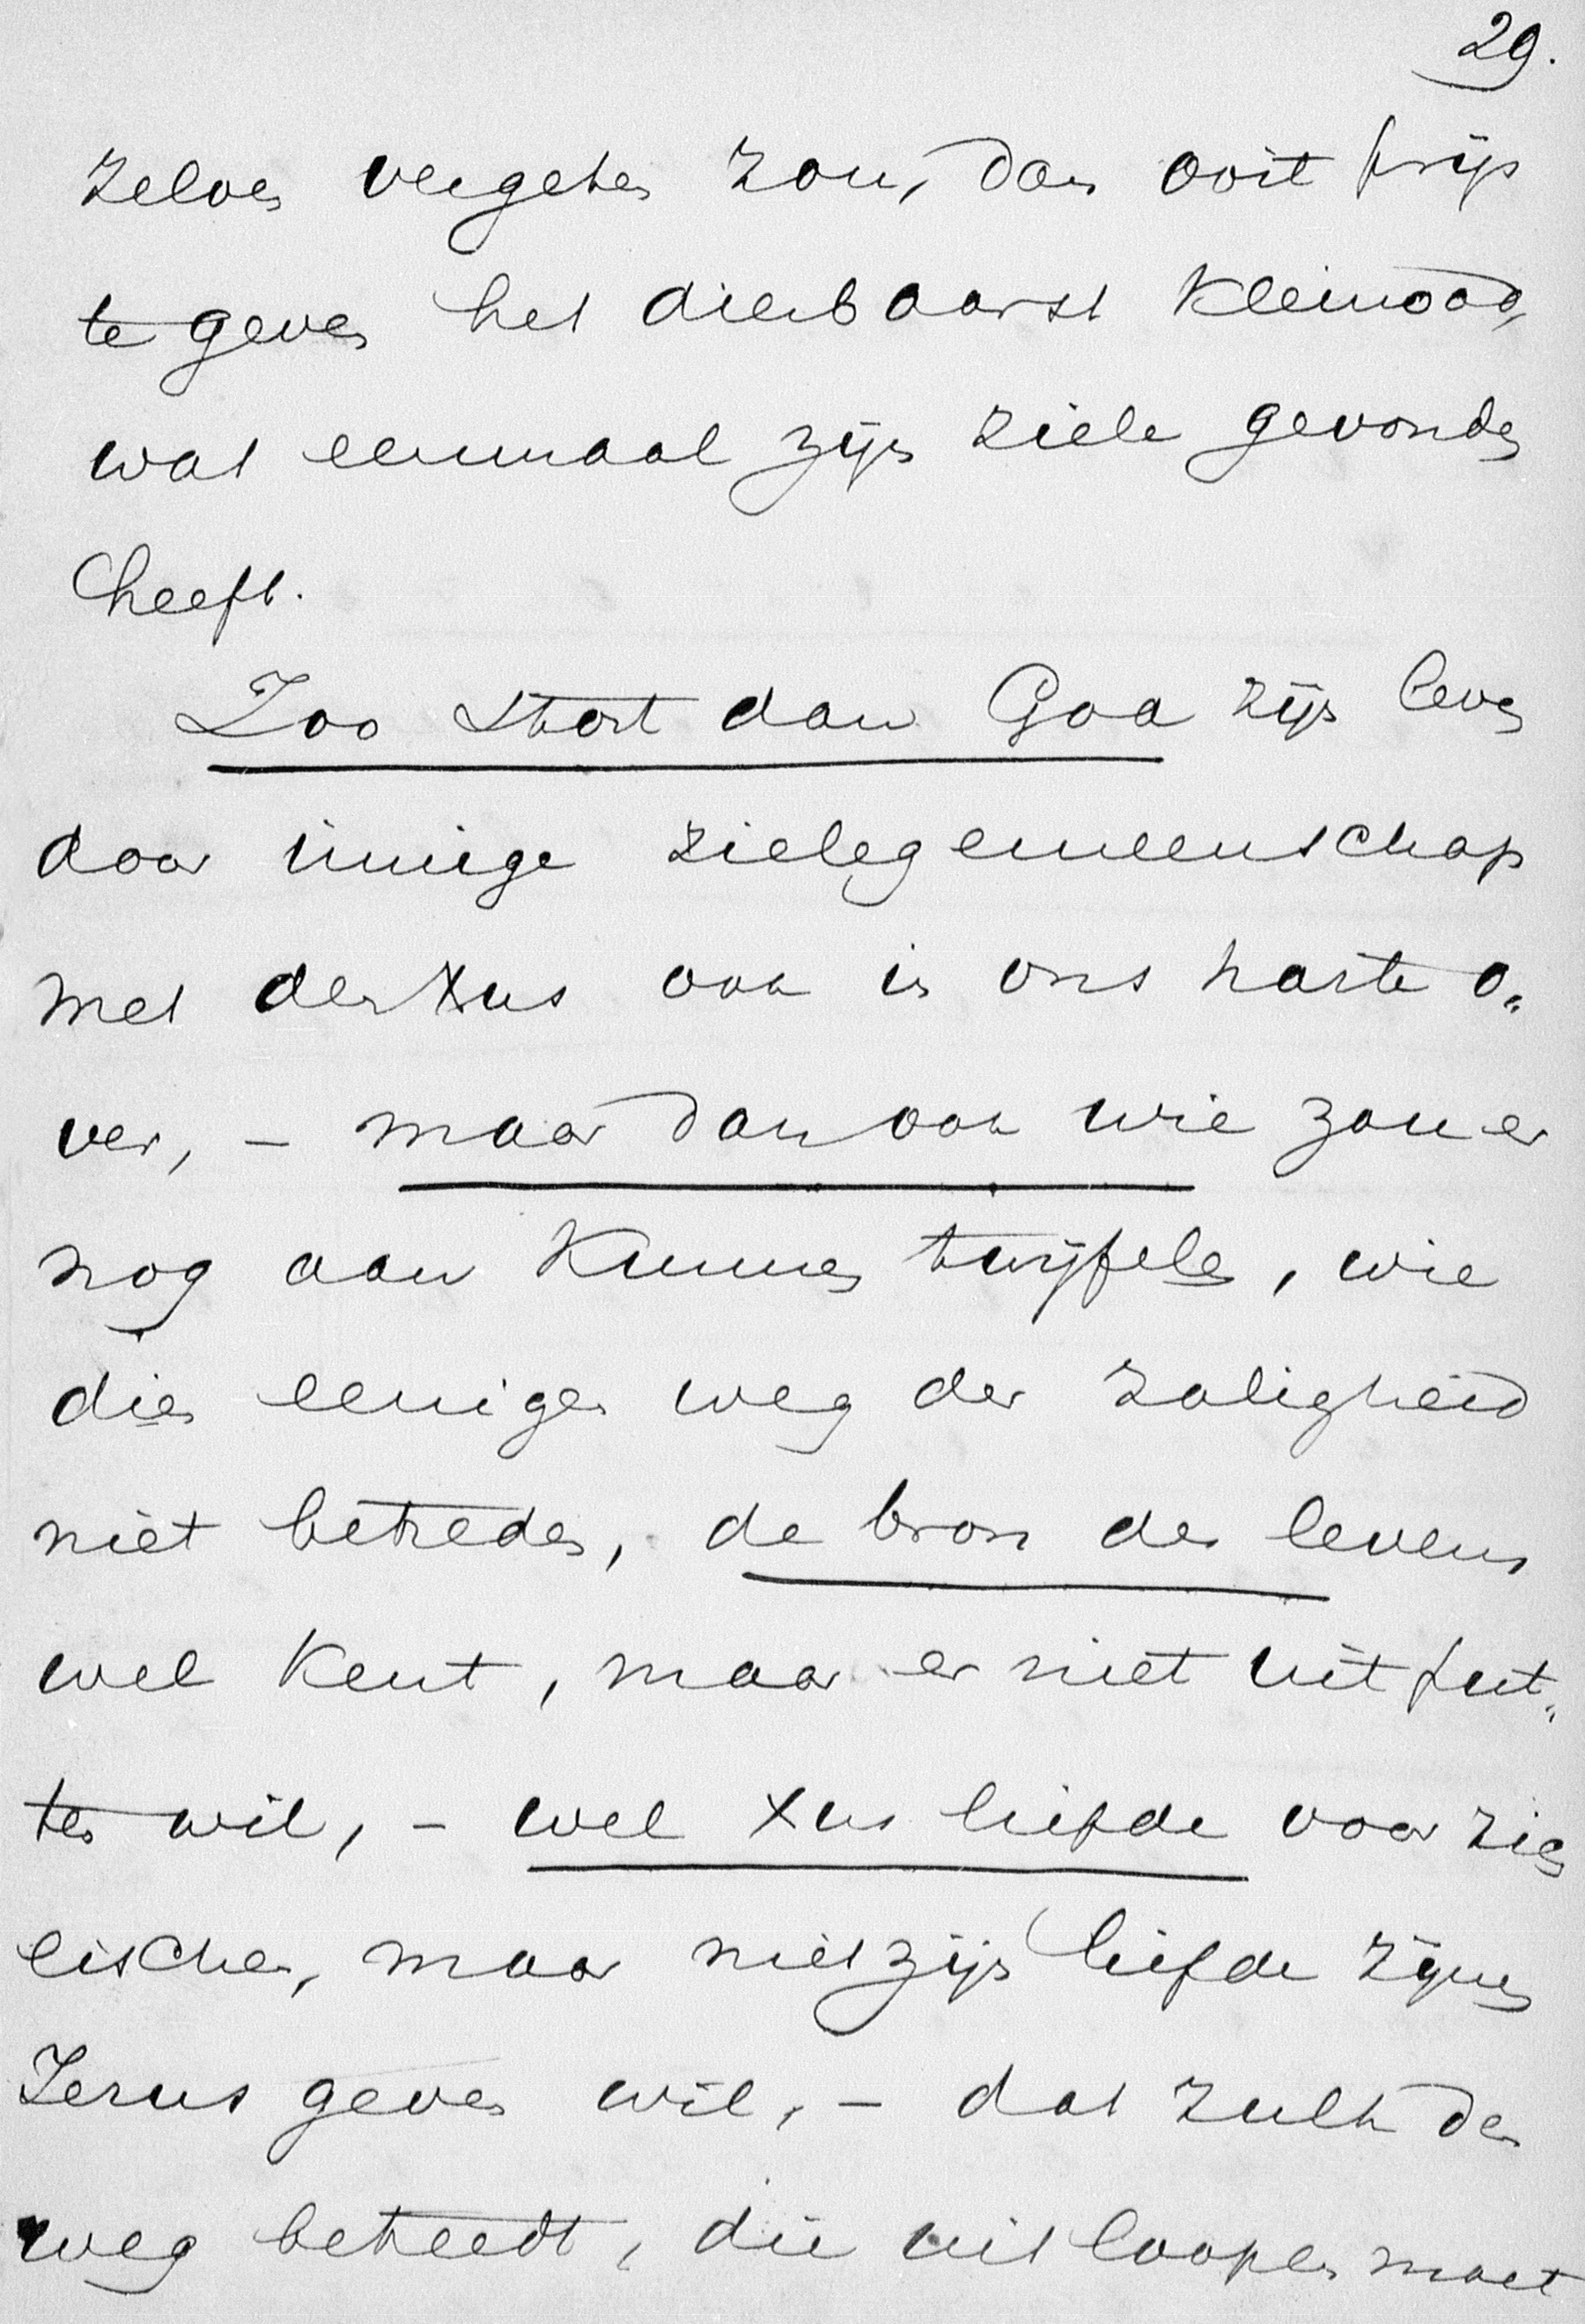 29.
zelven vergeten zou, dan ooit prijs
te geven het dierbaarst kleinood,
wat eenmaal zijn ziele gevonden
heeft.
Zoo stort dan God zijn leven
door innige zielsgemeenschap
met den Xus ook in ons harte o„
ver, – maar dan ook wie zou er
nog aan kunnen twijfelen, wie
dien eenigen weg der zaligheid
niet betreden, de bron des levens
wel kent, maar er niet uit put„
ten wil, – wel Xus liefde voor zich
eischen, maar niet zijn liefde zijnen
Jezus geven wil, – dat zulk den
weg betreedt, die uitloopen moet